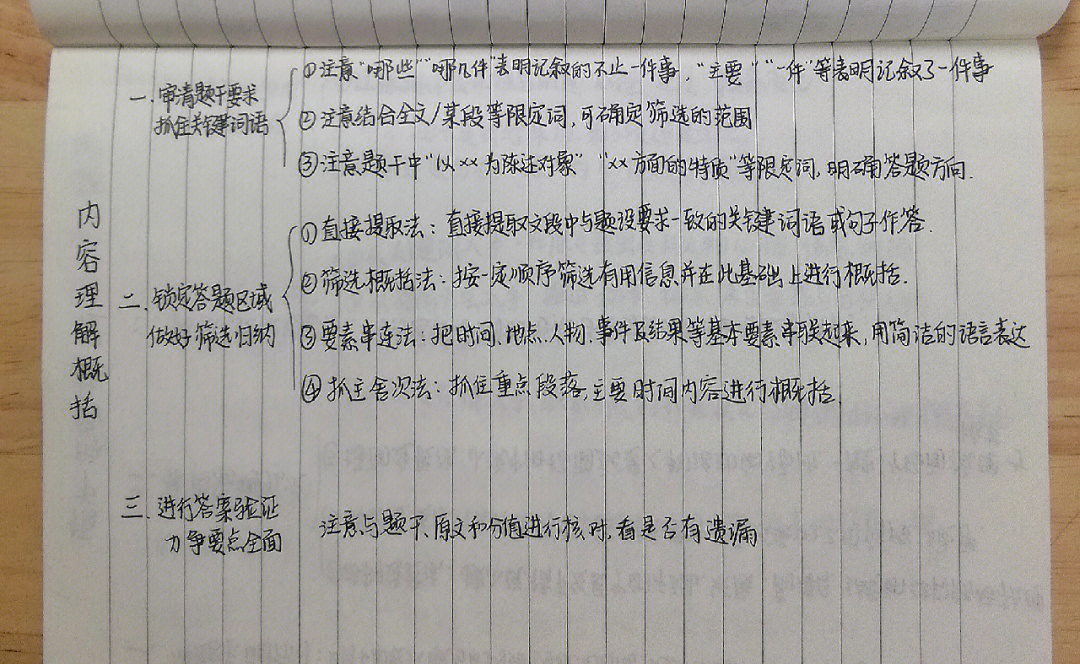 内容理解概括
一、审清题干要求
抓住关键词语
①注意“哪些”“哪几件”表明记叙的不止一件事，“主要”“一件”等表明记叙了一件事
②注意结合全文/某段等限定词，可确定筛选的范围
③注意题干中“以××为陈述对象”“××方面的特质”等限定词，明确答题方向.
二、锁定答题区域
做好筛选归纳
①直接提取法：直接提取文段中与题设要求一致的关键词语或句子作答.
②筛选概括法：按一定顺序筛选有用信息并在此基础上进行概括.
③要素串连法：把时间、地点、人物、事件及结果等基本要素串联起来，用简洁的语言表达
④抓主舍次法：抓住重点段落，主要时间内容进行概括.
三、进行答案验证
力争要点全面
注意与题干、原文和分值进行核对，看是否有遗漏